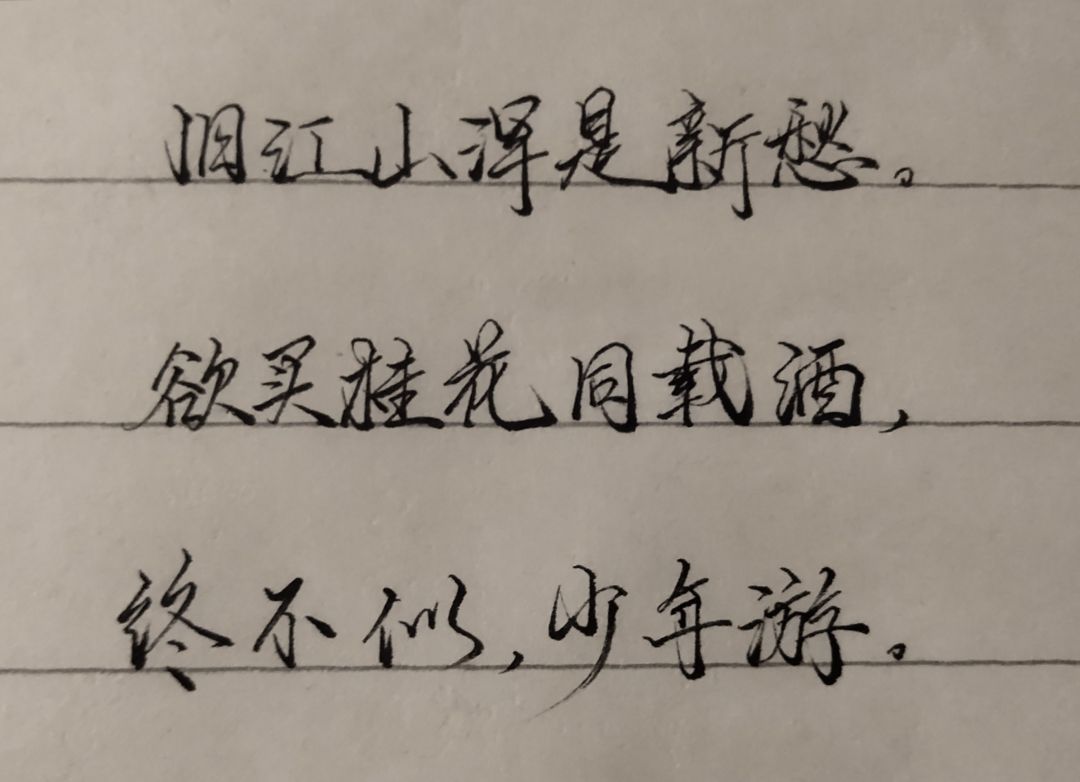 旧江山浑是新愁。
欲买桂花同载酒，
终不似，少年游。